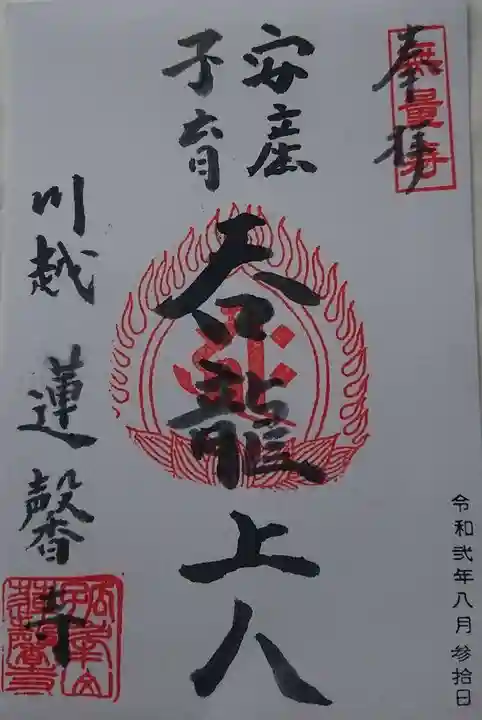 奉拝
無量寿
安産
子育
呑龍上人
川越 蓮馨寺
令和弐年八月参拾日